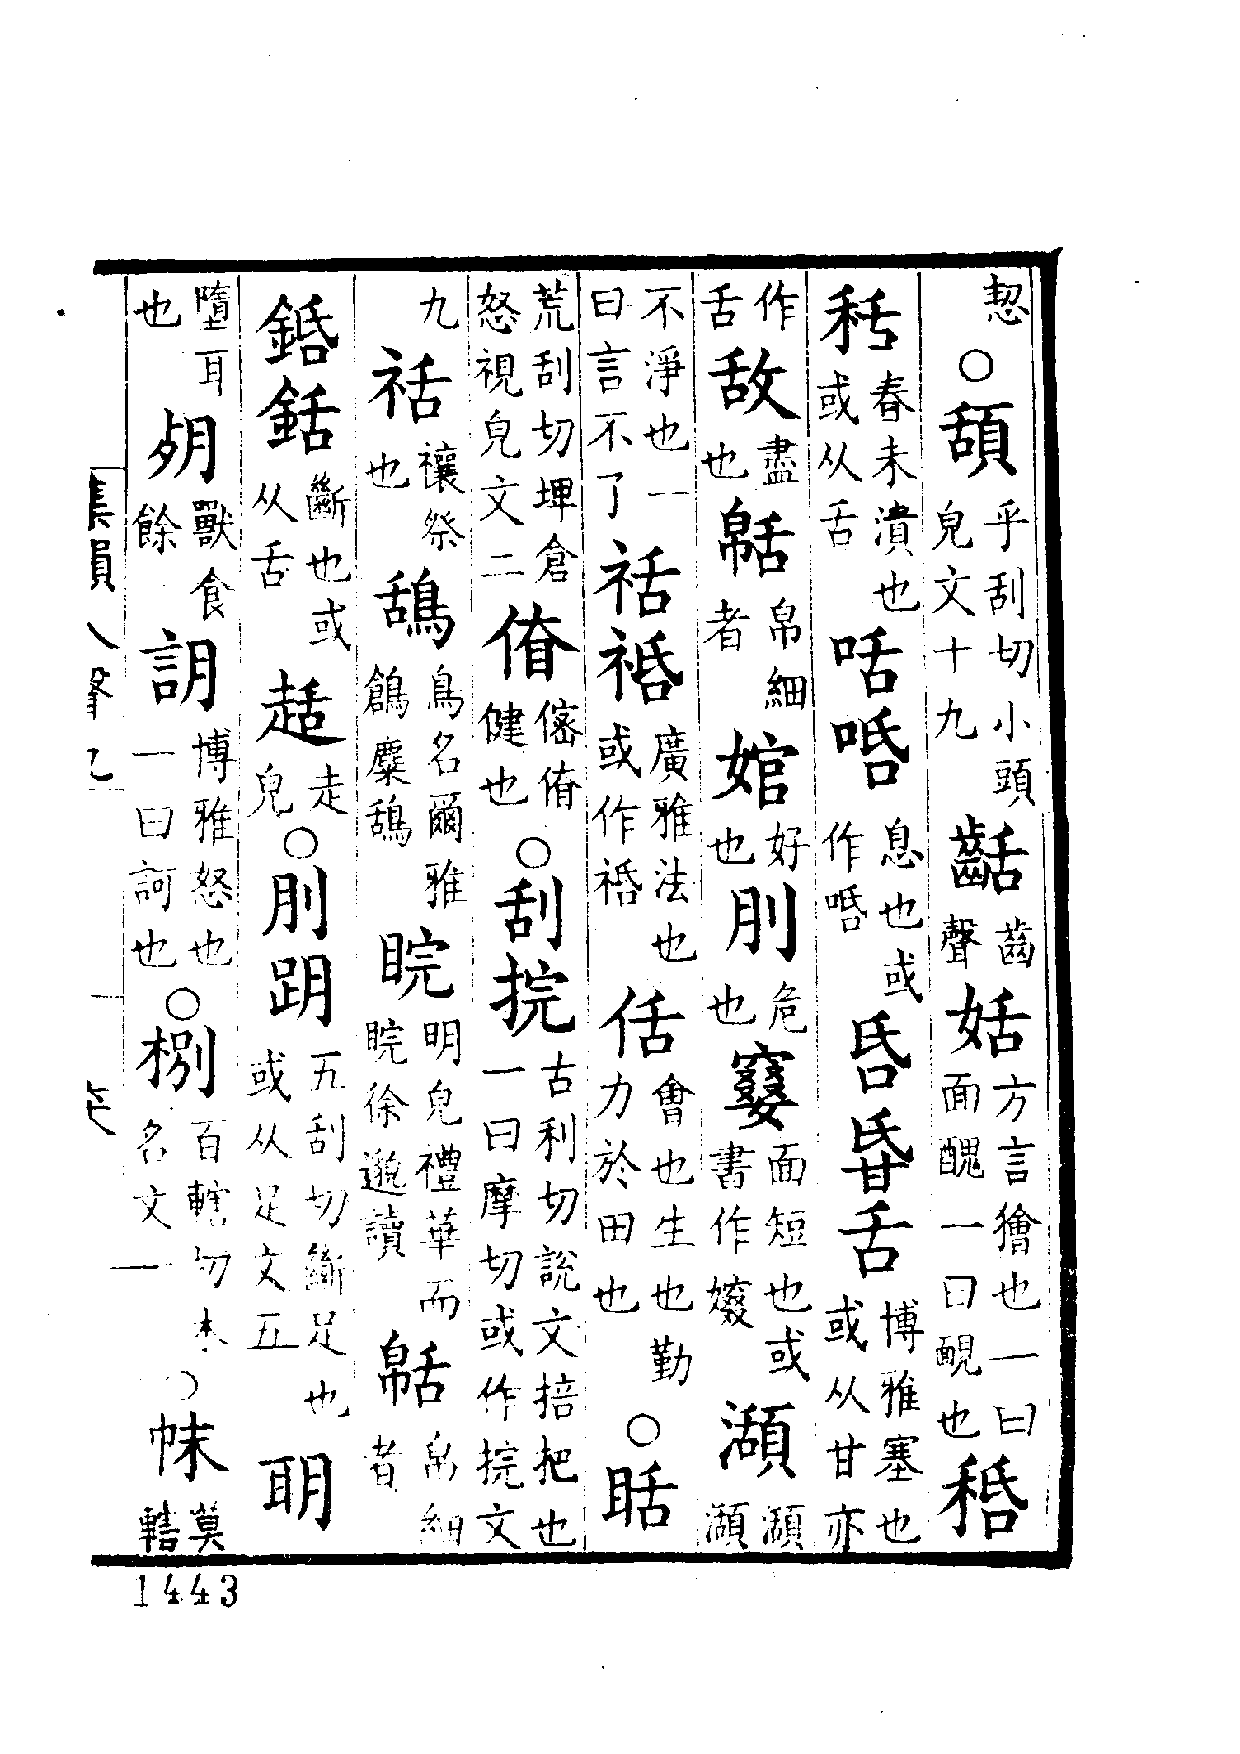 恝〇頢乎刮切小頭皃文十九䶪齒聲姡方言獪也一曰面醜一曰靦也秳
秳春未潰也或从舌咶㖧息也或作㖧昏昬舌博雅塞也或从甘亦
作舌敌盡也㡇帛細者婠好也刖危也窡面短也或書作嬡䫄
不淨也一曰言不了䄆䄆廣雅法也或作䄆佸會也生也勤力於田也〇䀨
荒刮切埤倉怒視皃文二㑾傛㑾健也〇刮捖古利切說文掊把也一曰摩切或作捖文
九䄆禳祭也鴰鳥名爾雅鶬麋鴰睆明皃禮華而睆徐邈讀㡇帛細者
銽銛斷也或从舌趏走皃〇刖跀五刮切斷足也或从足文五聉
墮耳也𣧏獸食餘詽博雅怒也一曰訶也〇捌百轄切木名文一〇帓莫轄
集韻入聲九
1443